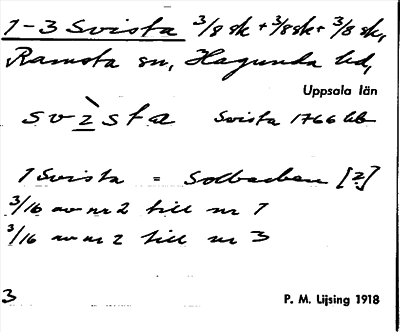 1-3 Svista 3/8 sk + 3/8 sk + 3/8 sk,
Ramsta sn, Hagunda hd,
Uppsala län
svìsta Svista 1766 lb
1 Svista = Solbacken [?]
3/16 av nr 2 till nr 1
3/16 av nr 2 till nr 3
3 P. M. Lijsing 1918